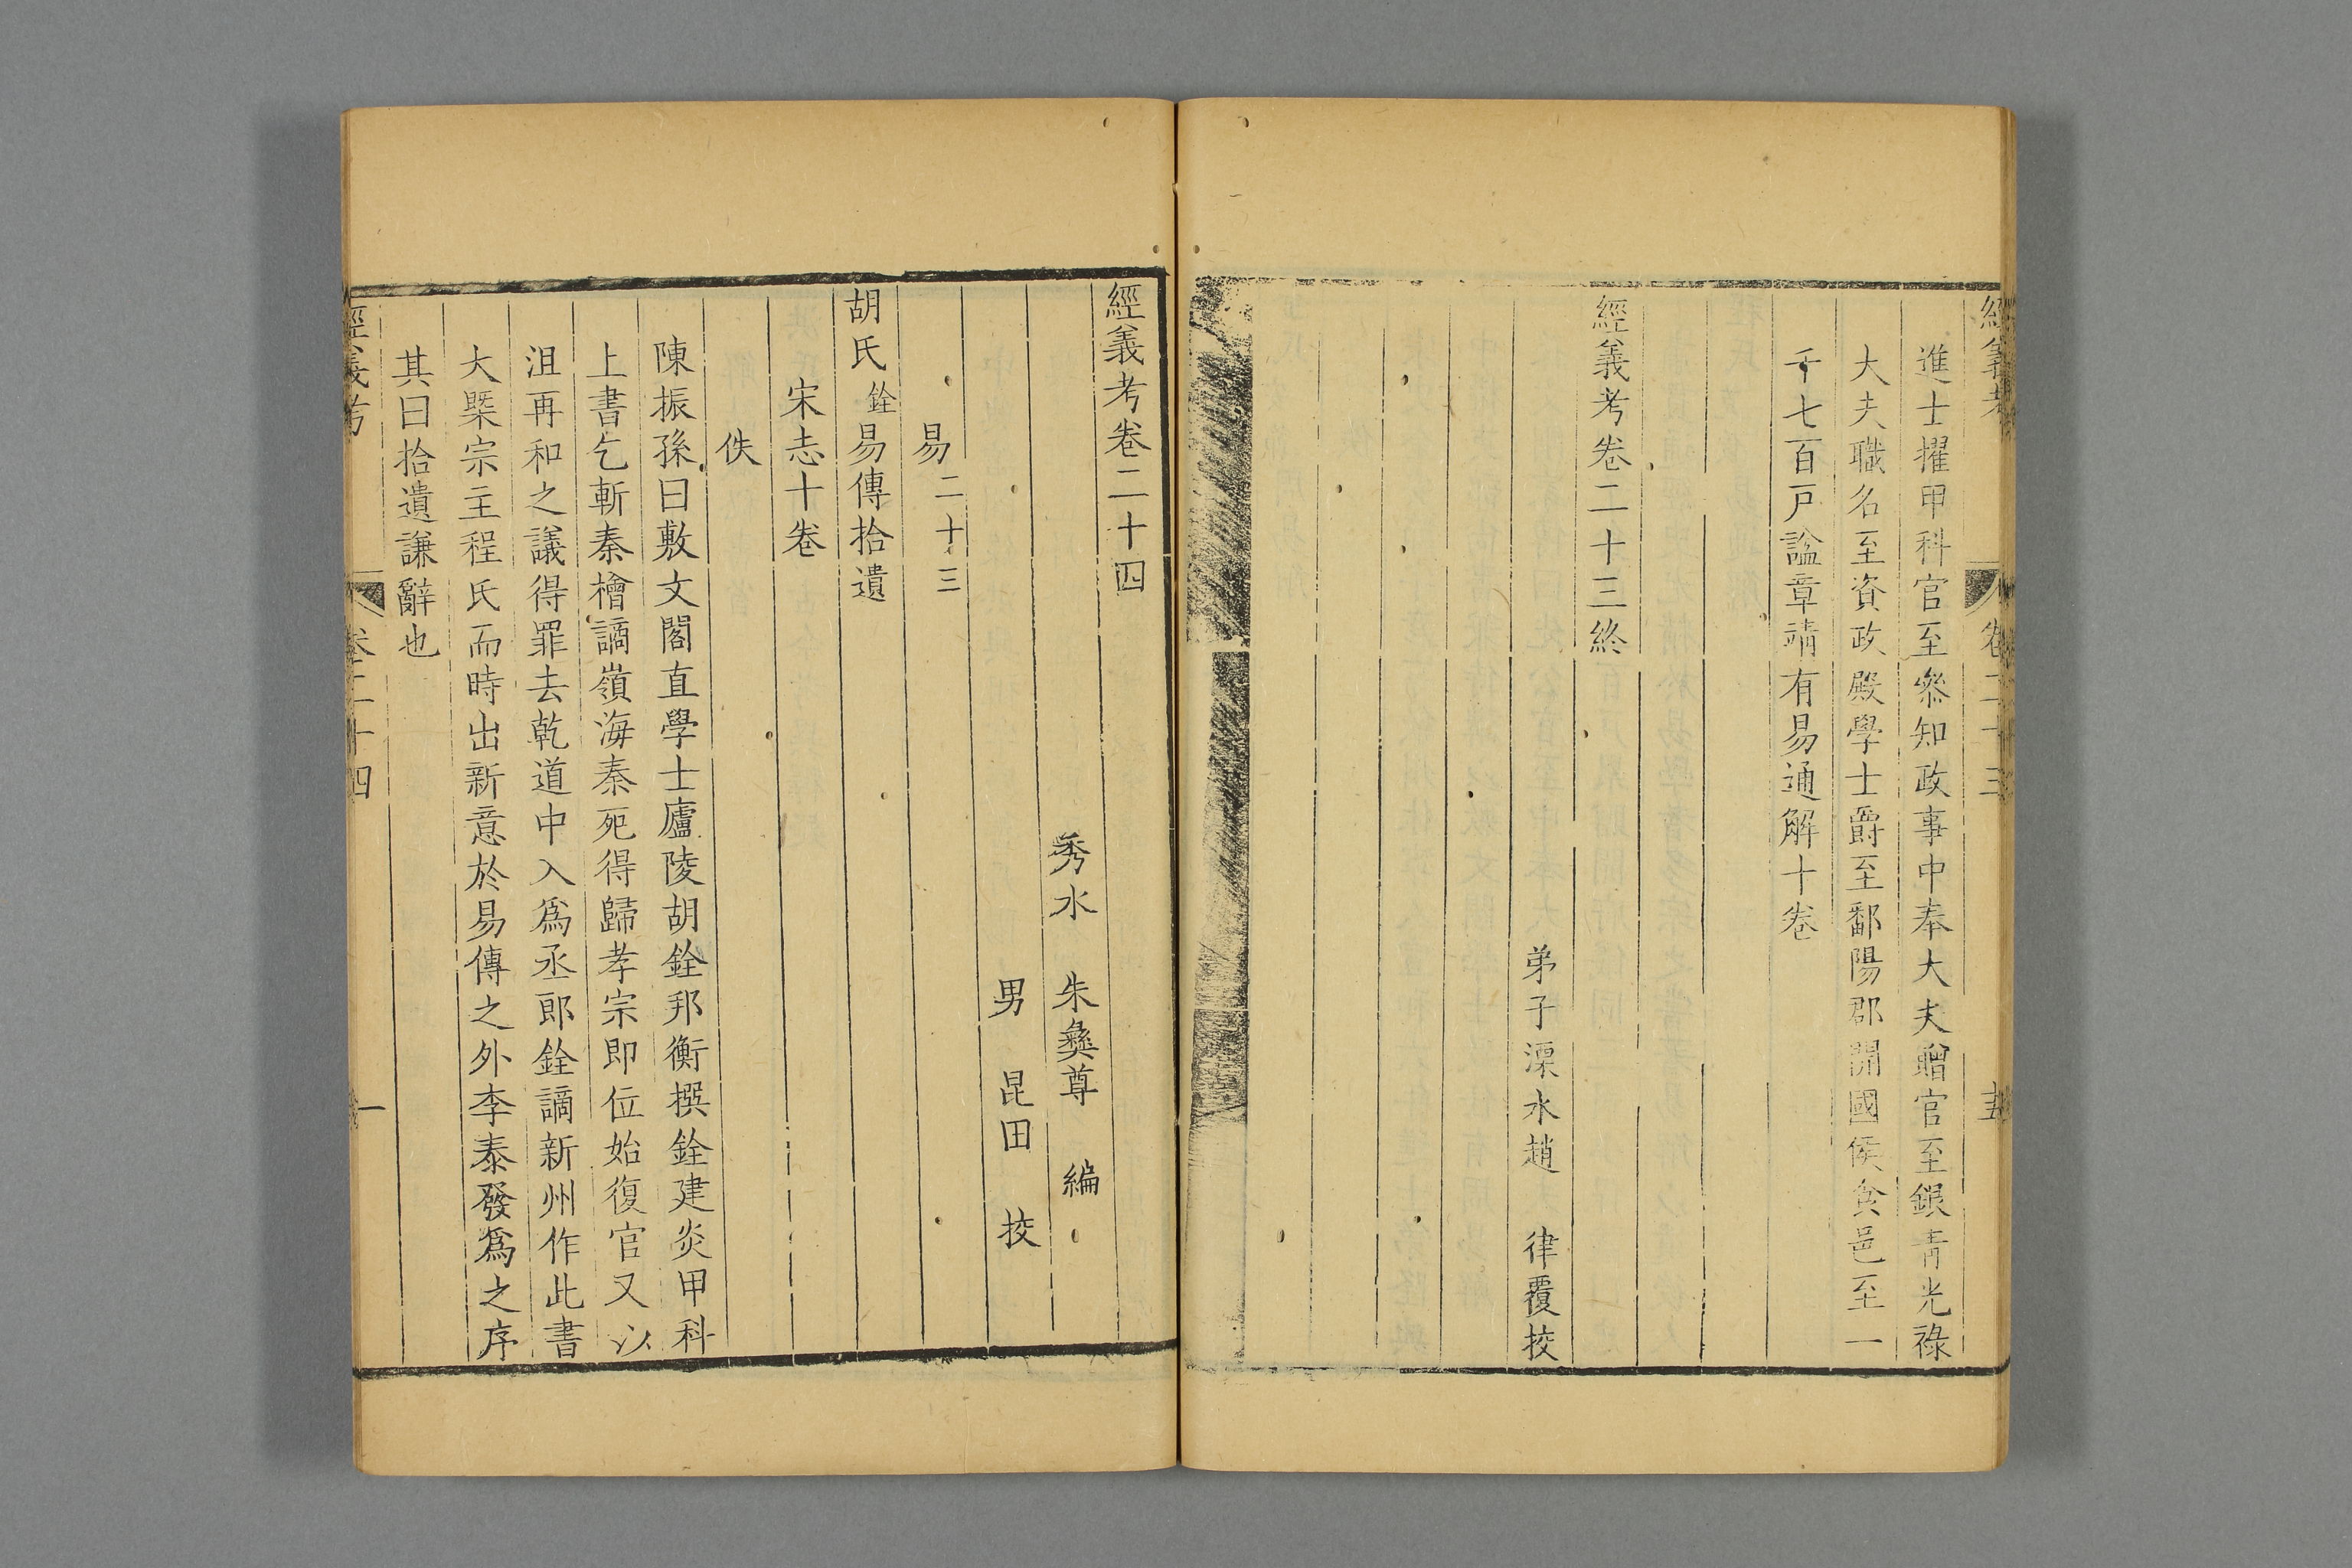 經義考 卷二十三 十五
進士擢甲科官至參知政事中奉大夫贈官至銀青光祿
大夫職名至資政殿學士爵至鄱陽郡開國侯食邑至一
千七百戸諡章靖有易通解十卷
經義考卷二十三終
弟子溧水趙 律覆挍
經義考卷二十四
秀水 朱彝尊 編
男 昆田 挍
易二十三
胡氏銓易傳拾遺
宋志十卷
佚
陳振孫曰敷文閣直學士廬陵胡銓邦衡撰銓建炎甲科
上書乞斬秦檜謫嶺海秦死得歸孝宗即位始復官又以
沮再和之議得罪去乾道中入爲丞郎銓謫新州作此書
大槩宗主程氏而時出新意於易傳之外李泰發爲之序
其曰拾遺謙辭也
經義考 卷二十四 一